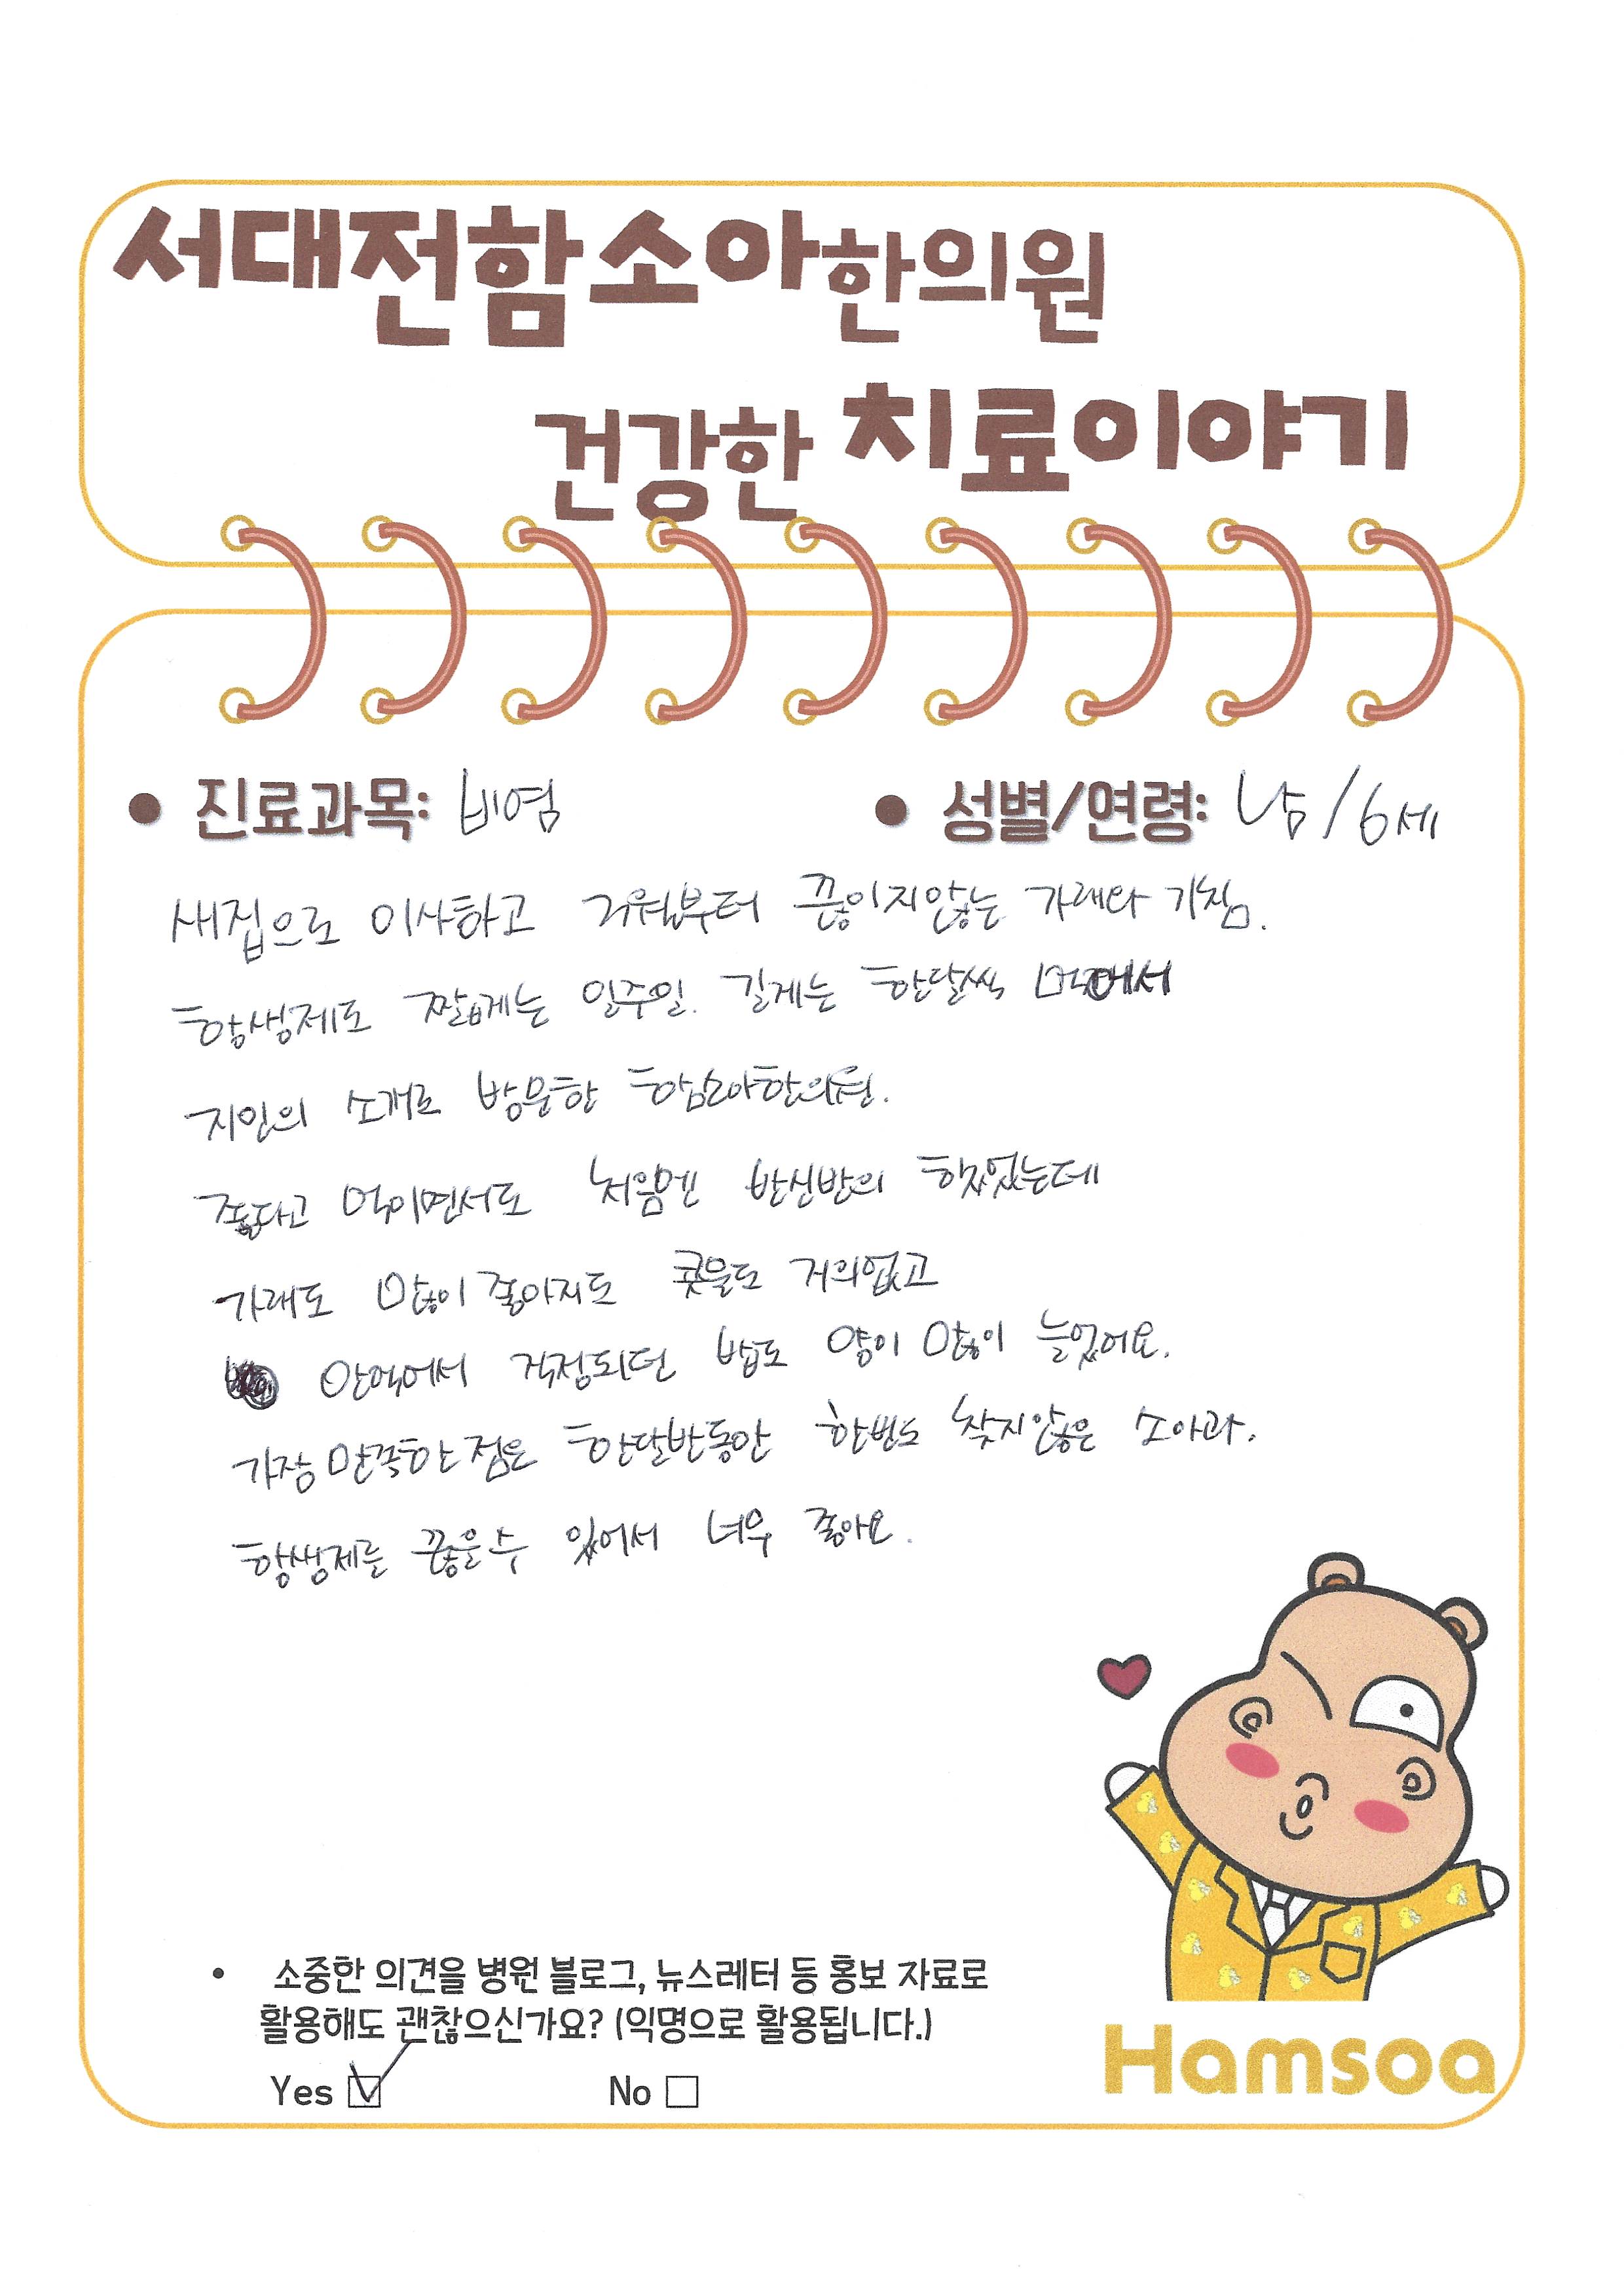 서대전함소아한의원
건강한 치료이야기
• 진료과목: 비염
• 성별/연령: 남/6세
새집으로 이사하고 겨울부터 끊이지않는 가래와 기침.
항생제도 짧게는 일주일. 길게는 한달씩 먹어서
지인의 소개로 방문한 함소아한의원.
좋다고 먹이면서도 처음엔 반신반의 했었는데
가래도 많이 좋아지도 콧물도 거의없고
안먹어서 걱정되던 밥도 양이 많이 늘었어요.
가장 만족한 점은 한달반동안 한번도 찾지않은 소아과.
항생제를 끊을수 있어서 너무 좋아요.
• 소중한 의견을 병원 블로그, 뉴스레터 등 홍보 자료로
활용해도 괜찮으신가요? (익명으로 활용됩니다.)
Yes ☑ No ☐
Hamsoa